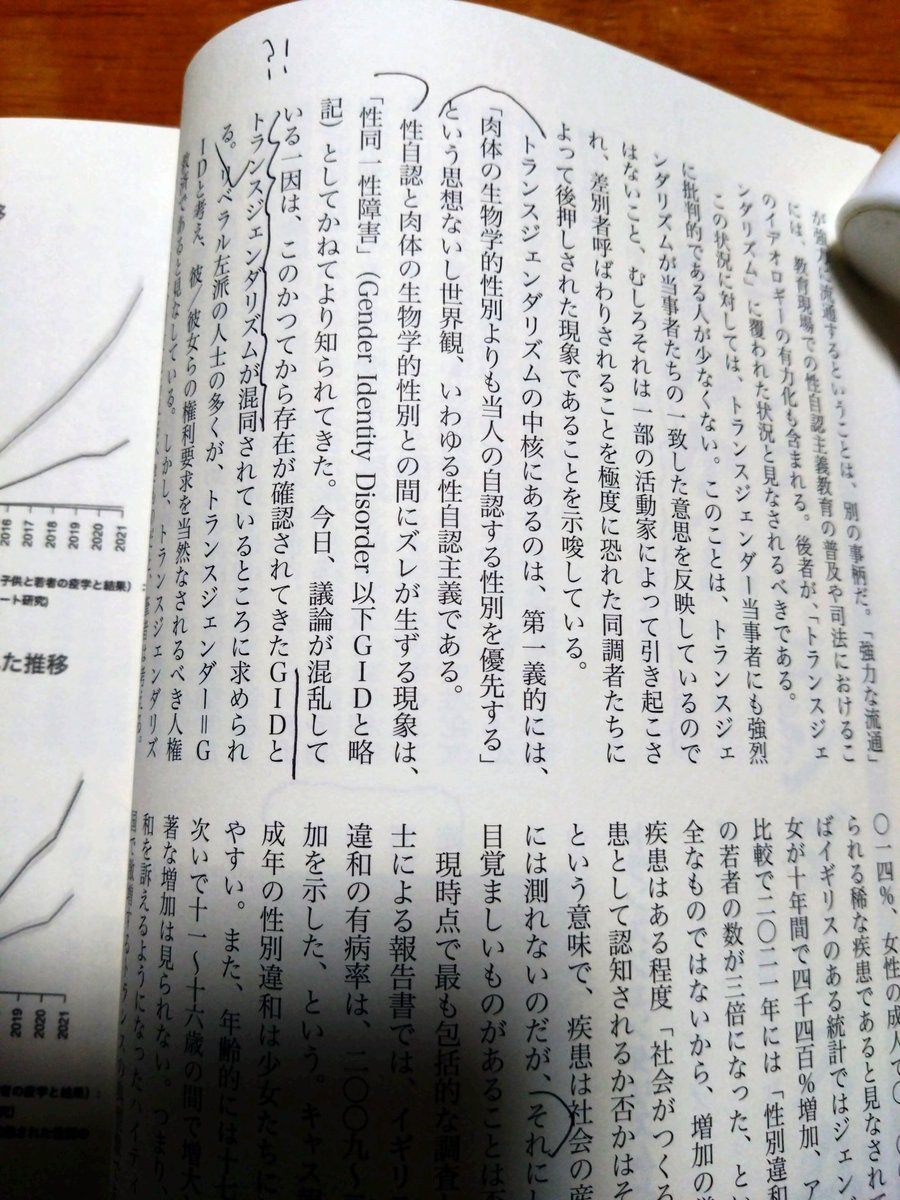 が強力に流通するということは、別の事柄だ。「強力な流通」
には、教育現場での性自認主義教育の普及や司法におけるこ
のイデオロギーの有力化も含まれる。後者が、「トランスジェ
ンダリズム」に覆われた状況と見なされるべきである。
この状況に対しては、トランスジェンダー当事者にも強烈
に批判的である人が少なくない。このことは、トランスジェ
ンダリズムが当事者たちの一致した意思を反映しているので
はないこと、むしろそれは一部の活動家によって引き起こさ
れ、差別者呼ばわりされることを極度に恐れた同調者たちに
よって後押しされた現象であることを示唆している。
トランスジェンダリズムの中核にあるのは、第一義的には、
「肉体の生物学的性別よりも当人の自認する性別を優先する」
という思想ないし世界観、いわゆる性自認主義である。
性自認と肉体の生物学的性別との間にズレが生ずる現象は、
「性同一性障害」(Gender Identity Disorder 以下GIDと略
記)としてかねてより知られてきた。今日、議論が混乱して
いる一因は、このかつてから存在が確認されてきたGIDと
トランスジェンダリズムが混同されているところに求められ
る。リベラル左派の人士の多くが、トランスジェンダー=G
IDと考え、彼/彼女らの権利要求を当然なされるべき人権
であると見なしている。しかし、トランスジェンダリズ
?!
〇一四%、女性の成人で
られる稀な疾患であると見なされ
ばイギリスのある統計ではジェン
女が十年間で四千四百%増加、ア
比較で二〇二一年には「性別違和
の若者の数が三倍になった、と
全なものではないから、増加の
疾患はある程度「社会がつくる
患として認知されるか否かはそ
という意味で、疾患は社会の産
には測れないのだが、それにし
目覚ましいものがあることは
現時点で最も包括的な調査
士による報告書では、イギリ
違和の有病率は、二〇〇九〜
加を示した、という。キャス
成年の性別違和は少女たちに
やすい。また、年齢的には十七
次いで十一〜十六歳の間で増大
著な増加は見られない。つまり、
和を訴えるようになったハイティ
移
2016
2017
2018
2019
2020
2021
子供と若者の疫学と結果)
ート研究)
た推移
2019
2020
2021
者の疫学と結果):
究)